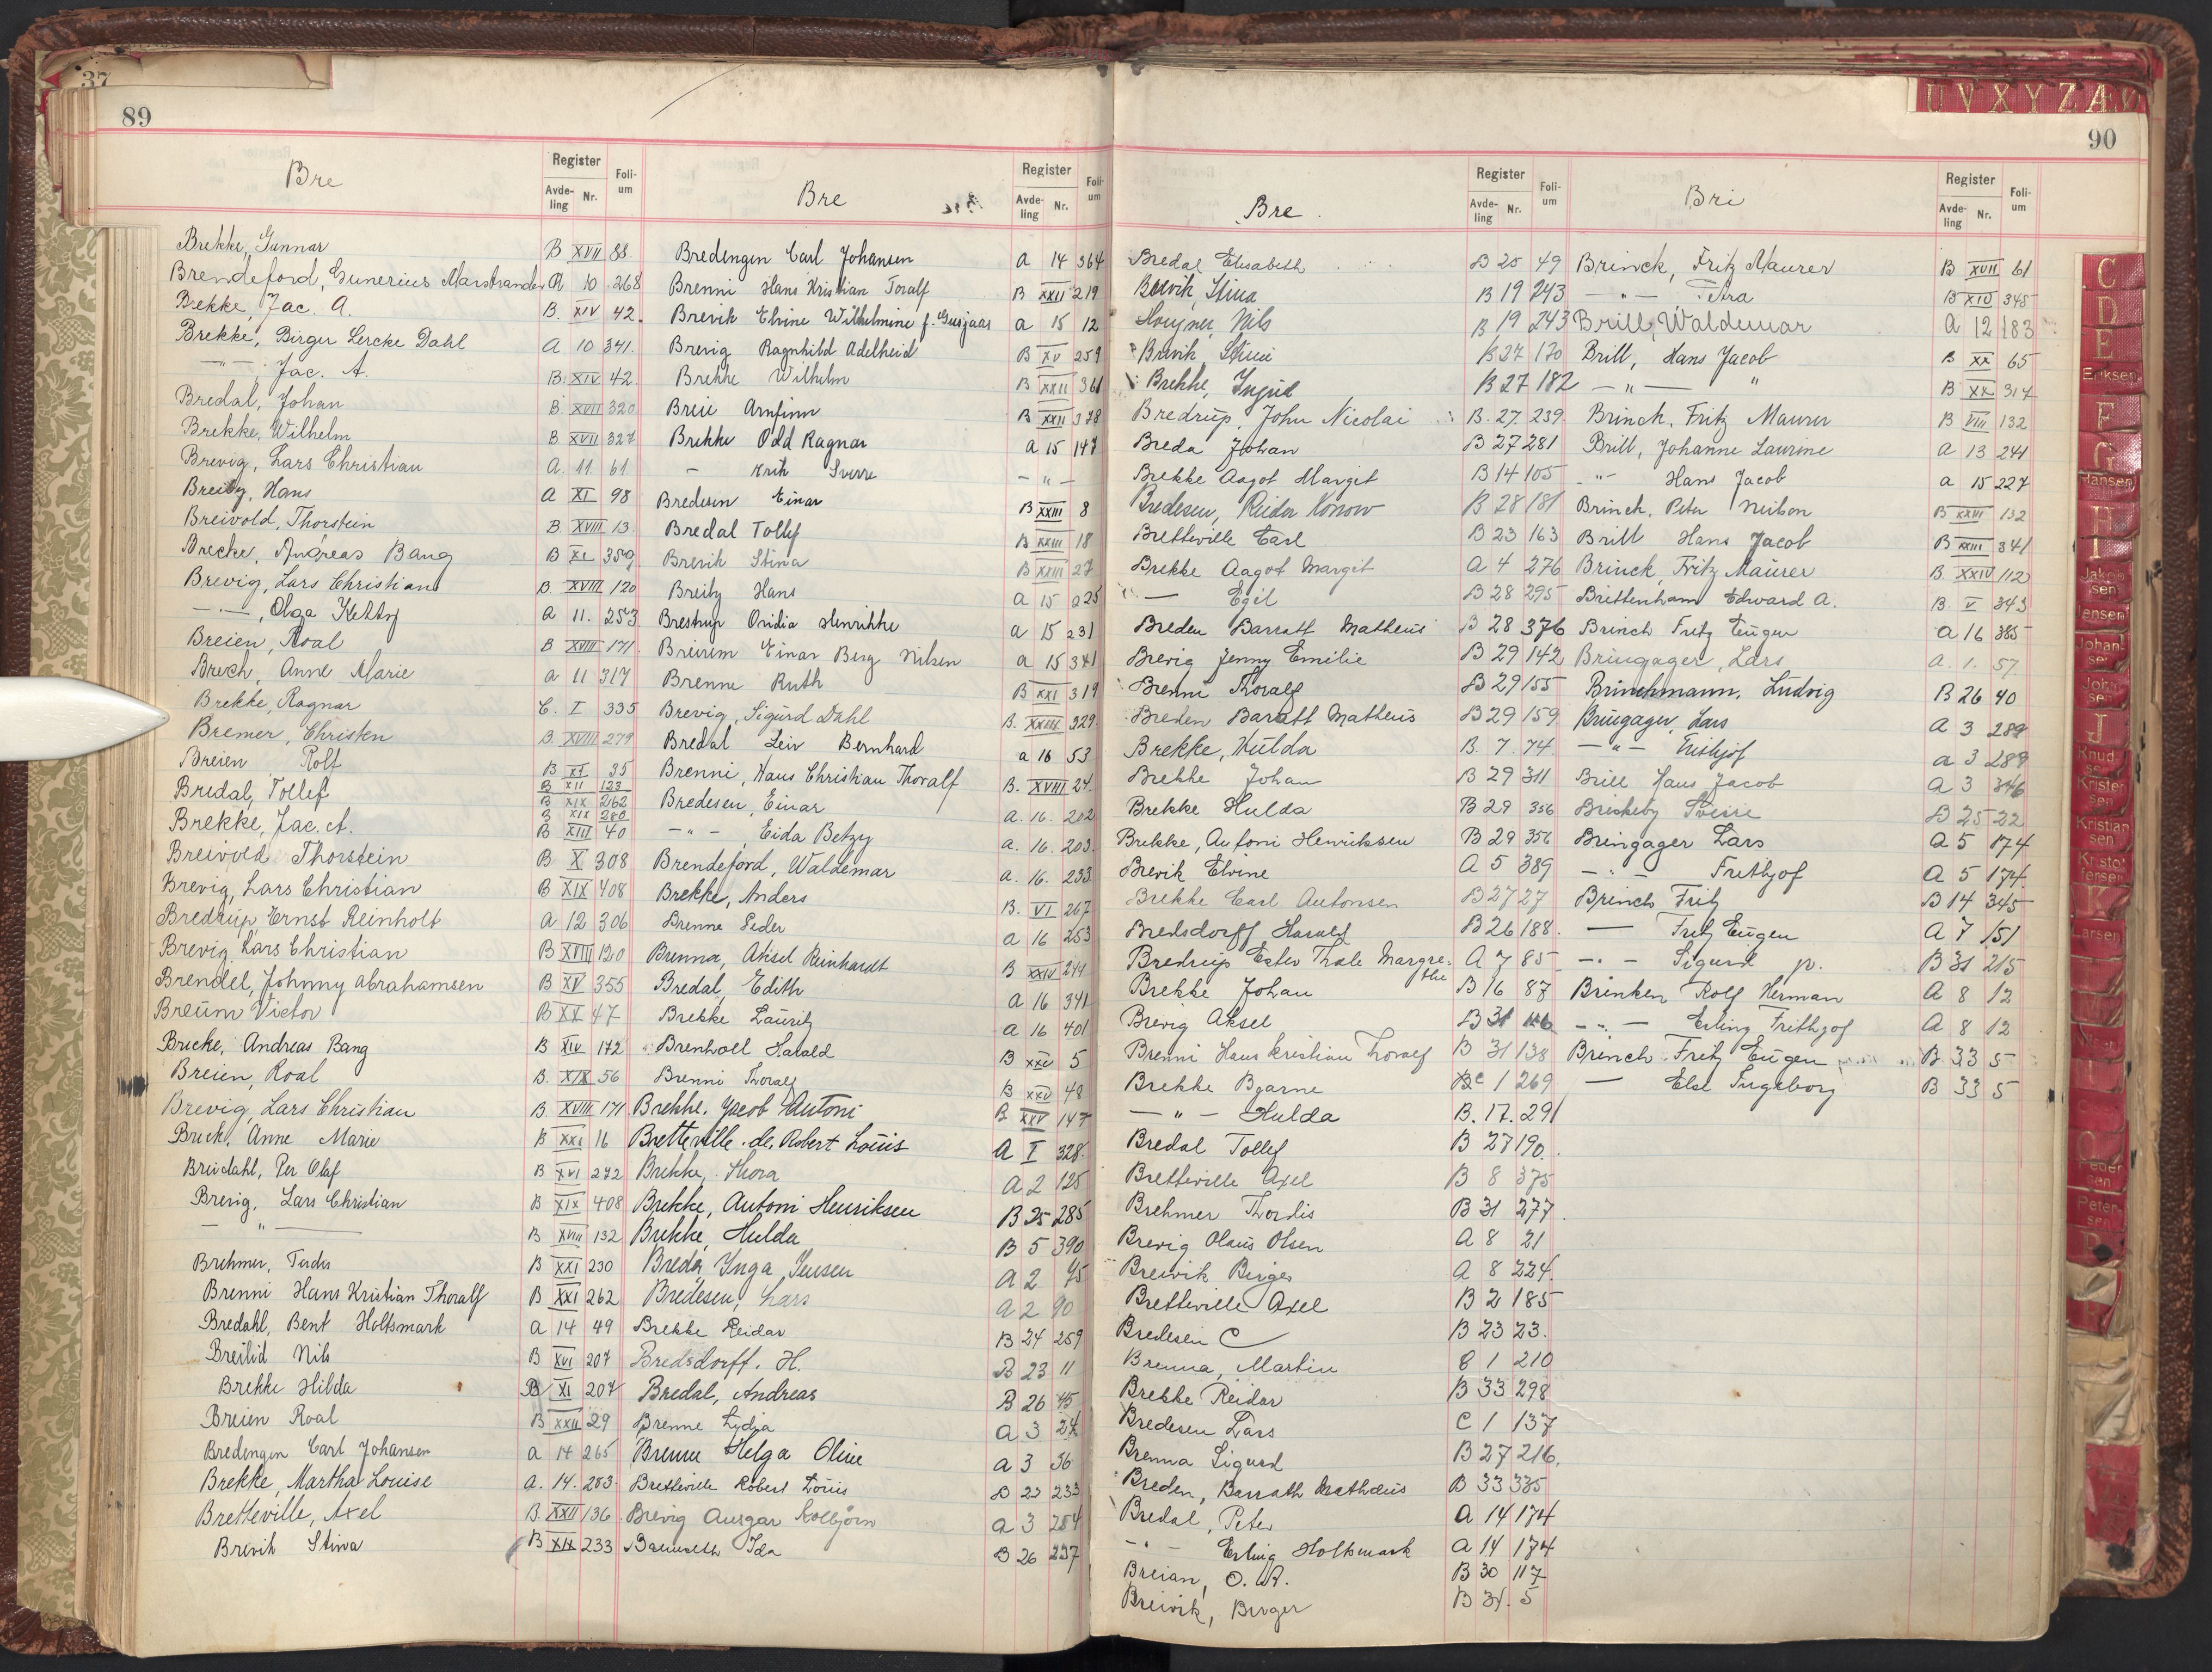 37
89
Bre
Register
Avde-
ling
Nr.
Foli-
um
Brekke, Gunnar B XVII 88
Brendeford, Gunerius Marstrander A 10 268
Brekke, Jac. A. B. XIV 42.
Brekke, Birger Lercke Dahl A 10 341.
—"— Jac. A. B. XIV 42
Bredal, Johan B. XVII 320
Brekke, Wilhelm B XVII 327
Brevig, Lars Christian A. 11 61
Breitz, Hans A XI 98
Breivold, Thorstein B XVIII 13
Brecke, Andreas Bang B XI 359
Brevig, Lars Christian B. XVIII 120
—"—, Olga Ketty A 11. 253
Breien, Roal B XVIII 171.
Brech, Anne Marie A 11 317
Brekke, Ragnar C. I 335
Bremer, Christen B XVIII 279
Breien Rolf B XI 35
Bredal, Tollef B XII 123
B XIX 262
Brekke, Jac. A. B XIX 280
B XIII 40
Breivold Thorstein B X 308
Brevig, Lars Christian B XIX 408
Bredrup, Ernst Reinholt A 12 306
Brevig, Lars Christian B XVIII 120
Brendel, Johnny Abrahamsen B XV 355
Breum Victor B XX 47
Brecke, Andreas Bang B XIV 172
Breien, Roal B. XIX 56
Brevig, Lars Christian B. XVIII 171
Breck, Anne Marie B XXI 16
Breidahl, Per Olaf B XVI 272
Brevig, Lars Christian B XIX 408
— " — B XVIII 132
Brehmer, B XXI 230
Brenni Hans Kristian Thoralf B XXI 262
Bredahl, Bent Holtsmark A 14 49
Breilid Nils B XVI 207
Brekke Hilda B XI 207
Breien Roal B XXII 29
Bredengen Carl Johansen A 14 265
Brekke, Martha Louise A. 14. 283
Bretteville, Axel B. XXII 136
Brevik Stina B XIX 233
Bre
Register
Avde-
ling
Nr.
Foli-
um
Bredengen Carl Johansen A 14 364
Brenni Hans Kristian Toralf B XXII 219
Brevik Elvine Wilhelmine f. A 15 12
Brevig Ragnhild Adelheid B XV 259
Brekke Wilhelm B XXII 361
Breie Arnfinn B XXII 378
Brekke Odd Ragnar A 15 147
— Sverre — " —
Bredesen Einar B XXIII 8
Bredal Tollef B XXIII 18
Brevik Stina B XXIII 27
Breitz Hans A 15 225
Brestrup Ovidia Henrikke A 15 231
Breirem Einar Berg Nilsen A 15 341
Brenne Ruth B XXI 319
Brevig, Sigurd Dahl B. XXIII 329
Bredal Leiv Bernhard A 16 53
Brenni, Hans Christian Thoralf B. XVIII 24
Bredesen, Einar A. 16. 202
— " — Eida Betzy A. 16. 203
Brendeford, Waldemar A. 16. 233
Brekke, Anders B. VI 267
Brenne Peder A 16 253
Brenna, Aksel Reinhardt B XXIV 244
Bredal, Edith A 16 341
Brekke Lauritz A 16 401
Brenholl Harald B XXV 5
Brenni Thoralf B XXV 48
Brekke, Jacob Antoni B XXV 147
Bretteville de, Robert Louis A I 328
Brekke, Thora A 2 125
Brekke, Antoni Henriksen B 25 285
Brekke, Hulda B 5 390
Breda Inga Jensen A 2 45
Bredesen, Lars A 2 90
Brekke Reidar B 24 259
Bredsdorff, H. B 23 11
Bredal, Andreas B 26 45
Brenne Lydja A 3 24
Brenne Helga Oline A 3 36
Bretteville Robert Louis B 22 233
Brevig Ansgar Kolbjørn A 3 284
Ida B 26 237
90
Bre
Register
Avde-
ling
Nr.
Foli-
um
Bredal Elisabeth B 20 49
Brevik, Stina B 19 243
Nils B 19 243
Brevik, Stina B 27 170
Brekke, Ingrid B 27 182
Bredrup, John Nicolai B. 27. 239
Breda Johan B 27 281
Brekke Aagot Margit B 14 105
Bredesen, Reidar Konow B 28 181
Bretteville Carl B 23 163
Brekke Aagot Margit A 4 276
— Egil B 28 295
Breden Barratt Matheus B 28 376
Brevig Jenny Emilie B 29 142
Brenni Thoralf B 29 155
Breden Barratt Matheus B 29 159
Brekke, Hulda B. 7. 74
Brekke Johan B 29 311
Brekke Hulda B 29 356
Brekke, Antoni Henriksen B 29 356
Brevik Elvine A 5 389
Brekke Carl Antonsen B 27 27
Bredsdorff Harald B 26 188
Bredrup Ester Thale Margre-
the A 7 85
Brekke Johan B 16 87
Brevig Aksel B 31 116
Brenni Hans Kristian Thoralf B 31 138
Brekke Bjarne C 1 269
— " — Hulda B. 17. 291
Bredal Tollef B 27 190
Bretteville Axel B 8 375
Brehmer Thordis B 31 277
Brevig Olaus Olsen A 8 21
Breivik Birger A 8 224
Bretteville Axel B 2 185
Bredesen C B 23 23.
Brenna, Martin C 1 210
Brekke Reidar B 33 298
Bredesen Lars C 1 137
Brenna Sigurd B 27 216.
Breden, Barrath Mathæus B 33 335
Bredal, Peter A 14 174
— " — Erling Holtsmark A 14 174
Breian, O. B 30 117
Breivik, Birger B 34. 5
Bri
Register
Avde-
ling
Nr.
Foli-
um
Brinck, Fritz Maurer B XVII 61
— " — , Petra B XIV 345
Brill, Waldemar A 12 183
Brill, Hans Jacob B XX 65
— " — " B XX 314
Brinck, Fritz Maurer B VIII 132
Brill, Johanne Laurine A 13 241
— " — Hans Jacob A 15 227
Brinch, Peter Neilson B XXIII 132
Brill Hans Jacob B XXIII 341
Brinck, Fritz Maurer B. XXIV 112
Brettenham Edward A. B. V 343
Brinch Fritz Eugen A 16 385
Bringager, Lars A. 1. 57
Brinchmann, Ludvig B 26 40
Bringager, Lars A 3 289
— " — Frithjof A 3 289
Brill Hans Jacob A 3 346
Briskeby Sverre B 25 22
Bringager Lars A 5 174
— " — Frithjof A 5 174
Brinch Fritz B 14 345
— Fritz Eugen A 7 151
— " — Sigurd jr. B 31 215
Brinken Rolf Herman A 8 12
— " — Erling Frithjof A 8 12
Brinch Fritz Eugen B. 33 5
— Else Ingeborg B 33 5
U V X Y Z Æ Ø
C
D
E
Eriksen
F
G
Hansen
H
I
Jakob
sen
Jensen
Johan-
sen
John
sen
J
Knud
sen
Kristen
sen
Kristian
sen
Kristof
fersen
K
Larsen
O
Peder
sen
Peter-
sen
P